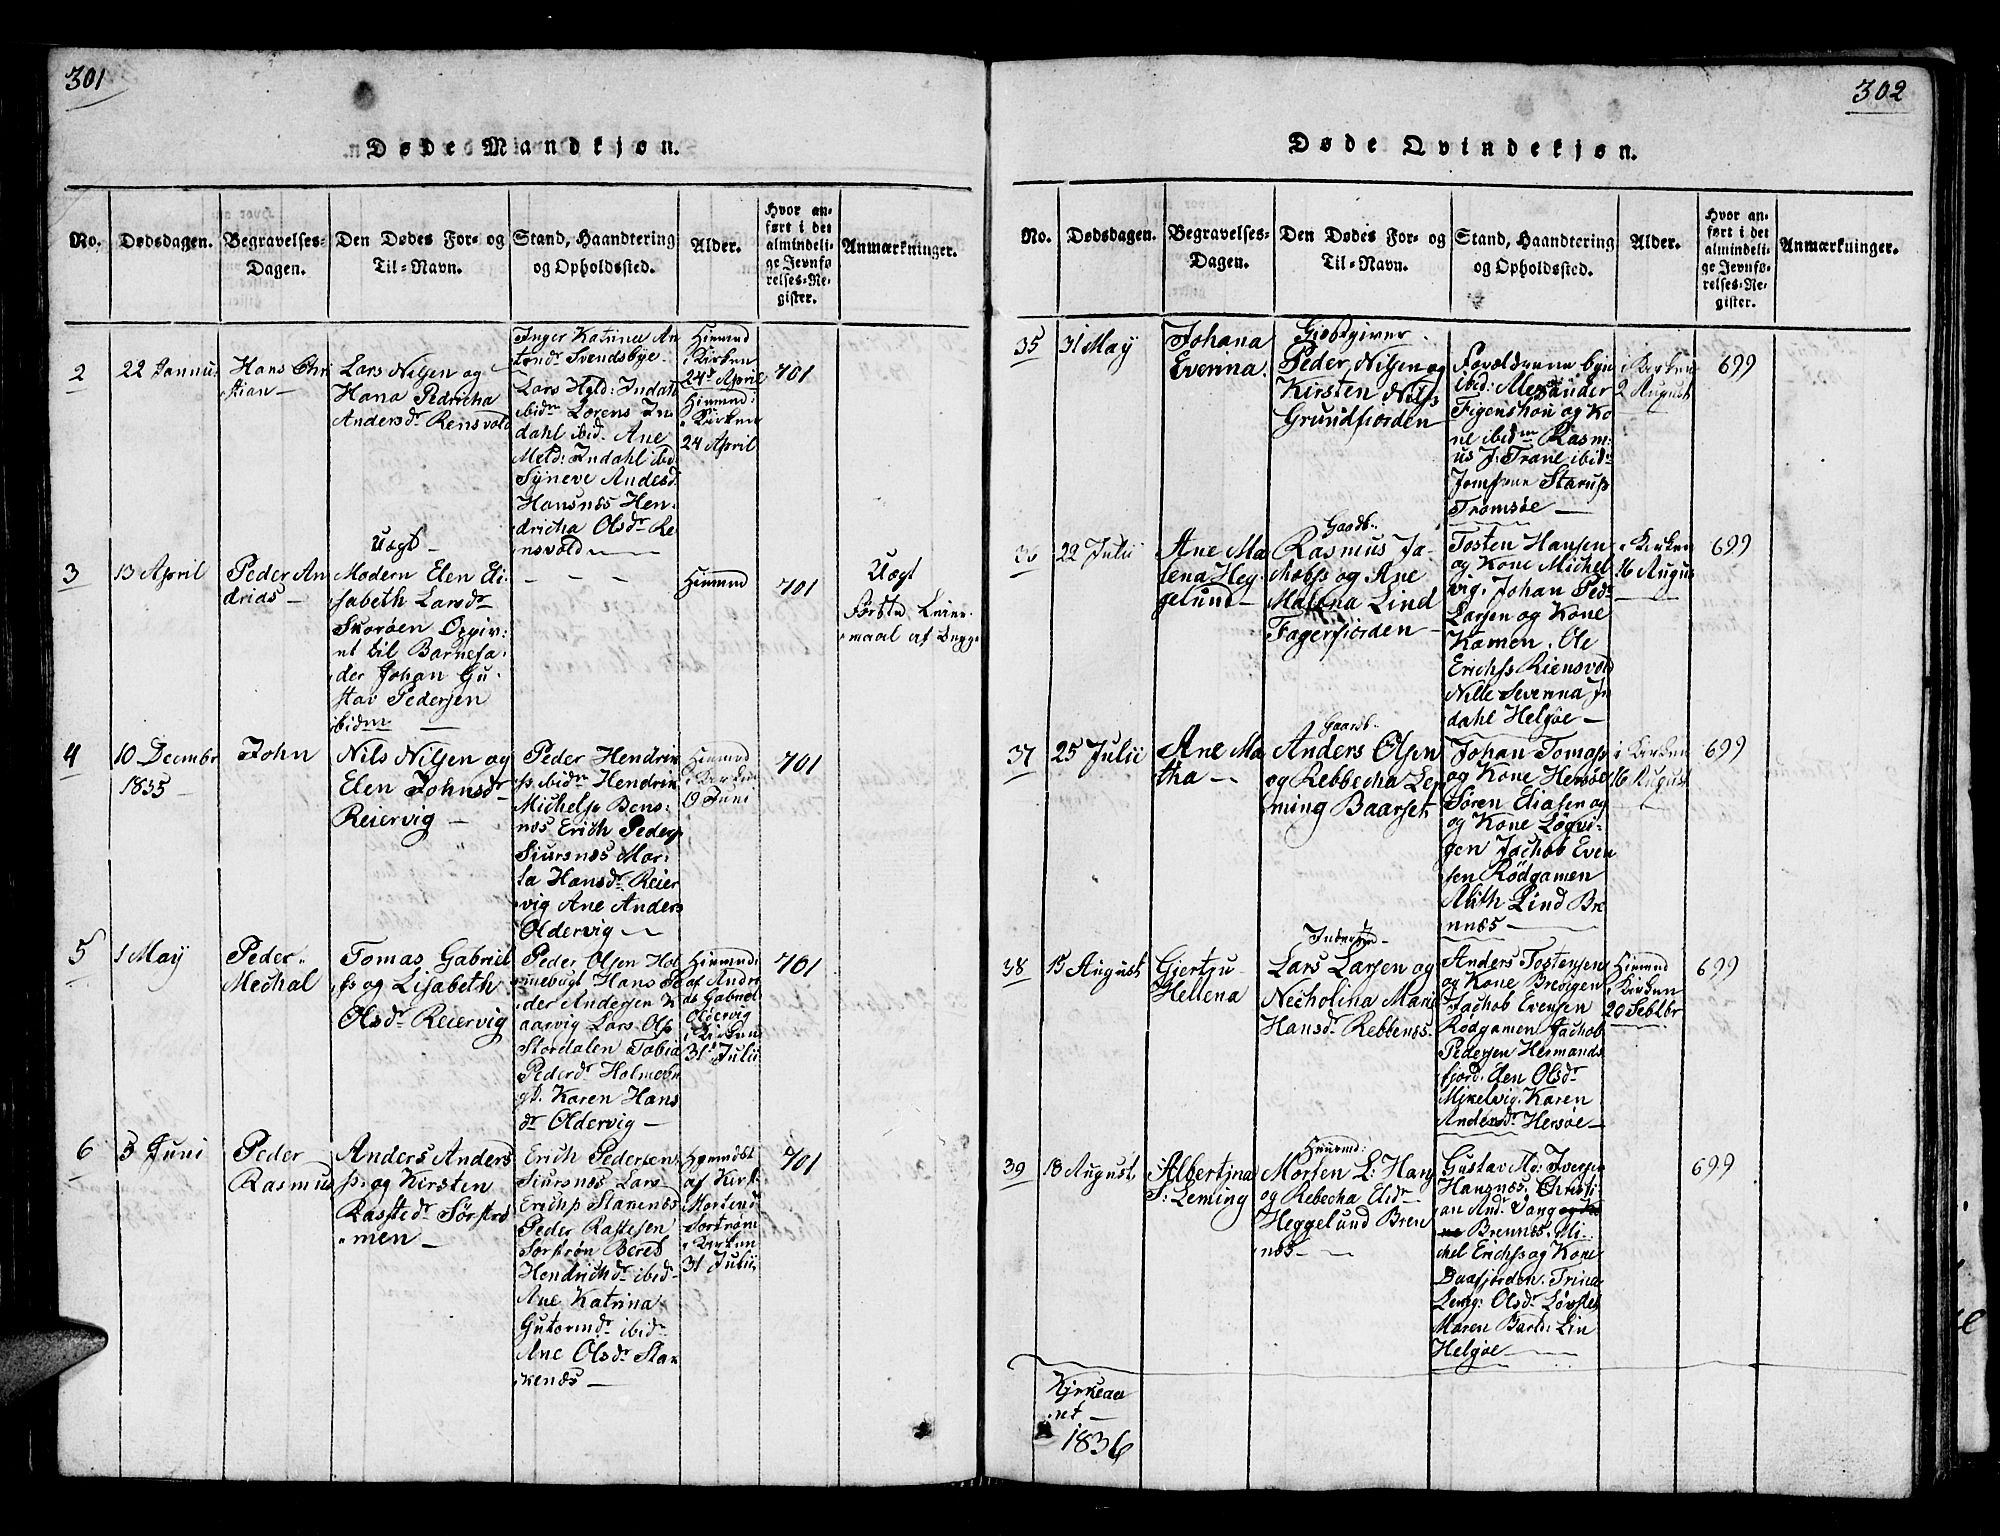 301
Døde Mandkjøn.
No.
Dødsdagen.
Begravelses-
Dagen.
Den Dødes For- og
Til-Navn.
Stand, Haandtering
og Opholdssted.
Alder.
Hvor an-
ført i det
almindeli-
ge Jevnfø-
relses-Re-
gister.
Anmærkninger.
2
22 Januu
Hans Chr
stian
Lars Nilsen og
Hana Pedricha
Andersdr Rensvold
Inger Katrina An
tondr Svendsbye
Lars Meld: Indahl
ibidm Lorens In
dahl ibid. Ane
Meld: Indahl ibd
Syneve Andesd
Hansnæs Hen
dricha Olsdr Re
nsvold
Hiemd
i Kirken
24d April
Hiemd:
i Kirken
24 April
701
3
13 April
Peder An
drias
Uægt
Modern Elen Eli
sabeth Larsdr
Skorøen Opgiv
et til Barnefa
der Johan Gu
stav Pedersen
ibidm
Hiemd
701
Uægt
Første Leier
maal af Begge
4
10 Decembr
1835
John
Nils Nilsen og
Elen Johnsdr
Reiervig
Peder Hendrik
s. ibidm Hendrik
Michels Bens
næs Erich Peders
Siursnæs Mar
ta Hansdr Reier
vig Ane Anders
Oldervig
Hiemd
i Kirken
Juni
701
5
1 May
Peder
Mechal
Tomas Gabriel
s og Lisabeth
Olsdr Reiervig
Peder Olsen Hol
mebugt Hans P
der Andersen K
aarvig Lars Ols
Stordalen Tobia
Pedersdr Holmebu
gt. Karen Hans
dr Oldervig
Hiemd:
af Andr
as Gabriel
Oldervig
i Kirken
31 Julii
701
6
3 Juni
Peder
Rasmus
Anders Anders
s. og Kirsten
Rastedr Sørstrø
men
Erich Pedersen
Siursnæs Lars
Erichs Starenes
Peder Rastesen
Sørstrøn Beret
Hendrichdr ibid
Ane Katrina
Gutormdr ibidm
Ane Olsdr Star
kenæs
Hiemdøbt
af Kirst
Mortensd
Sørstrøm
i Kirken
31 Julii
701
302
Døde Qvindekjøn.
No.
Dødsdagen.
Begravelses-
Dagen.
Den Dødes For- og
Til-Navn.
Stand, Haandtering
og Opholdssted.
Alder.
Hvor an-
ført i det
almindeli-
ge Jevnfø-
relses-Re-
gister.
Anmærkninger.
35
31 May
Johana
Everina
Giæstgiver
Peder Nilsen og
Kirsten Nils
Grundfiorden
Forældrene
ibid: Alexander
Figenshou og Ko
ne ibidm Rasm
us J: Trane ibidr
Jomfrue Starup
Tromsøe
i Kirken
2 August
699
36
22 Julii
Ane Ma
lena Heg
gelund
Gaardb.
Rasmus Ja
kobs og Ane
Malena Lind
Fagerfiorden
Tosten Hansen
og Kone Michel
vig. Johan Ped
Larsen og Kone
Kamen. Ole
Erichs Riensvold
Nille Severina In
dahl Helgøe
i Kirken
16 Augus
699
37
25 Julii
Ane Ma
tha
Gaardb.
Anders Olsen
og Rebbecha Le
ming Baarset
Johan Tomas
og Kone Hersøe
Søren Eliasen og
og Kone Løgvi
gen Jachob Even
sen Rødgamen
Alith Lind Bre
nnæs
i Kirken
16 August
699
38
15 August
Gjertru
Hellena
Inderst
Lars Larsen og
Necholina Marie
Hansdr Rebbenæs
Anders Tostensen
og Kone Brevigen
Jachob Evensen
Rødgamen Jachob
Pedersen Hermands
fjord. Elen Olsdr
Mikelvig. Karen
Andersdr Hersøe
Hiemd
i Kirken
20 Septbr
699
39
13 August
Albertina
S: Leming
Huusmd:
Morten L: Han
og Rebecha Elidr
Heggelund Bren
næs
Gustav Mo: Iversen
Hansnæs. Christi
an And. Vang og Ko
ne Brennæs. Mi
chel Erichs og Kone
Baafjorden. Trina
Lemg: Olsdr Løvstet
Maren Bartd: Lin
Helgøe
699
Kjrkeaa
ret
1836